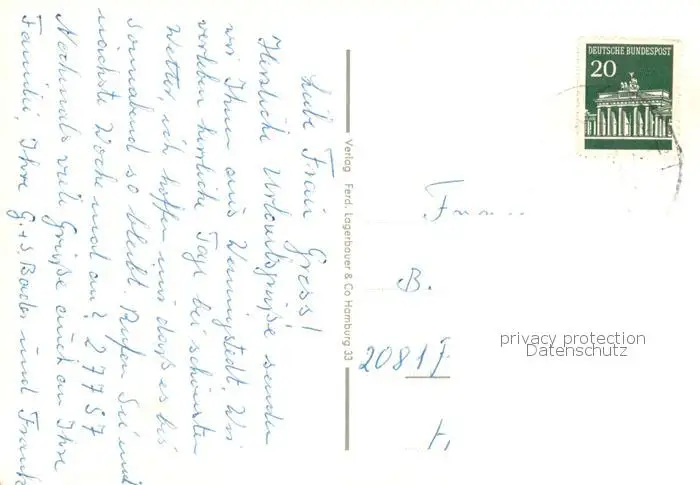 Liebe Frau Gross!
Herzliche Urlaubsgrüße senden
wir Ihnen aus Wenningstedt. Wir
verleben herrliche Tage bei schönstem
Wetter, ich hoffe nur daß es bis
Sonnabend so bleibt. Rufen Sie mal
nächste Woche mal an? 2 27757
Nochmals viele Grüße auch an Ihre
Familie, Ihre G.+S. Bader und Frank
Verlag Ferd. Lagerbauer & Co Hamburg 33
DEUTSCHE BUNDESPOST
20
B.
20817
privacy protection
Datenschutz